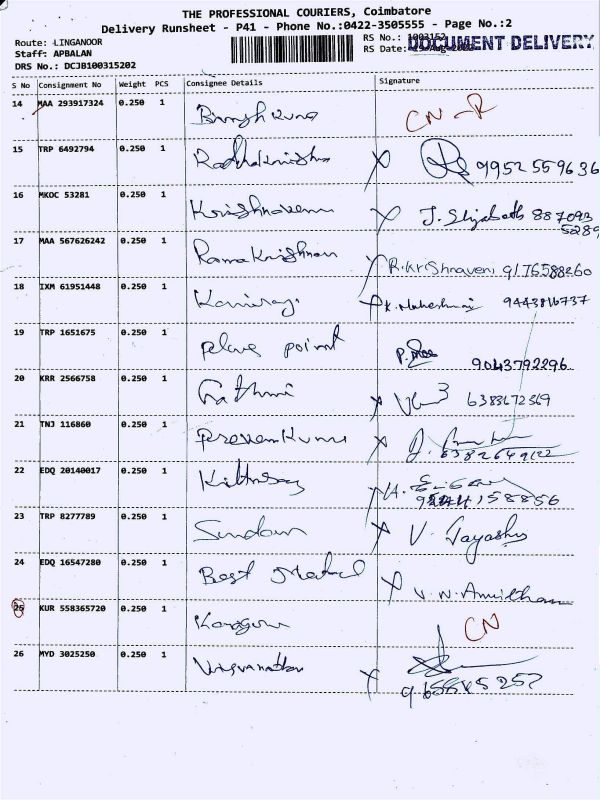 THE PROFESSIONAL COURIERS, Coimbatore
Delivery Runsheet - P41 - Phone No.:0422-3505555 - Page No.:2
Route: LINGANOOR
RS No.: 1003152
Staff: APBALAN
RS Date:
DOCUMENT DELIVERY
DRS No.: DCJB100315202
S No Consignment No Weight PCS Consignee Details Signature
14 MAA 293917324 0.250 1 CN
15 TRP 6492794 0.250 1 Radhakrishna 9952559636
16 MKOC 53281 0.250 1 Krishnaveni J. Elizabeth 887093
5289
17 MAA 567626242 0.250 1 Ramakrishnan R.Krishnaveni 9176588260
18 IXM 61951448 0.250 1 K. Maheshwari 9443816737
19 TRP 1651675 0.250 1 point 9043792296
20 KRR 2566758 0.250 1 6383672369
21 TNJ 116860 0.250 1 Praveen Kumar 6382649122
22 EDQ 20140017 0.250 1
23 TRP 8277789 0.250 1 Sundaram V. Jayashu
24 EDQ 16547280 0.250 1 Best Metal V. N. Amirtham
25 KUR 558365720 0.250 1 CN
26 MYD 3025250 0.250 1 Visvanathan